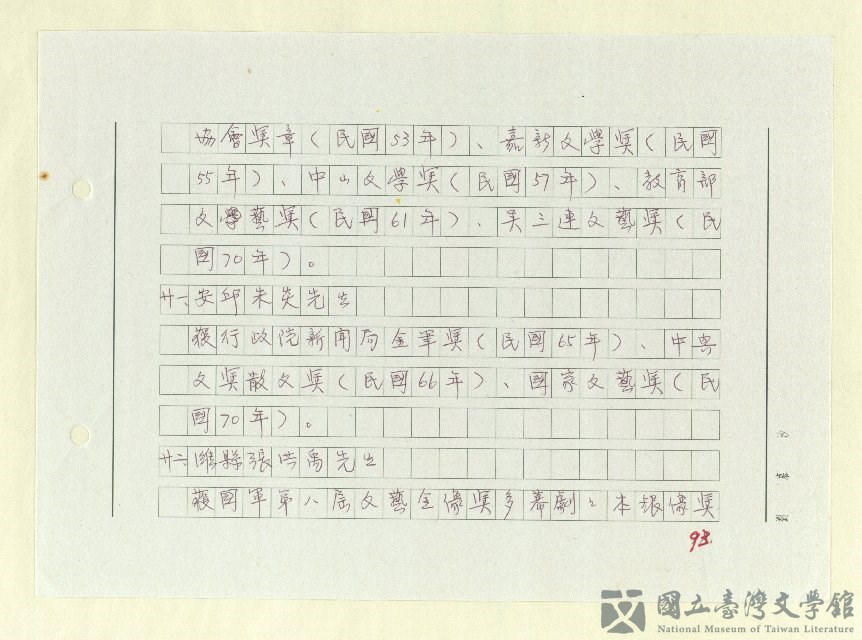 協會獎章（民國53年）、嘉新文學獎（民國
55年）、中山文學獎（民國57年）、教育部
文學藝獎（民國61年）、吳三連文藝獎（民
國70年）。
廿、安邱朱炎先生
獲行政院新聞局金筆獎（民國65年）、中央
文獎散文獎（民國66年）、國家文藝獎（民
國70年）。
廿六、濰縣張洪禹先生
獲國軍第八屆文藝金像獎多幕劇本銀像獎
93.
國立臺灣文學館
National Museum of Taiwan Literature